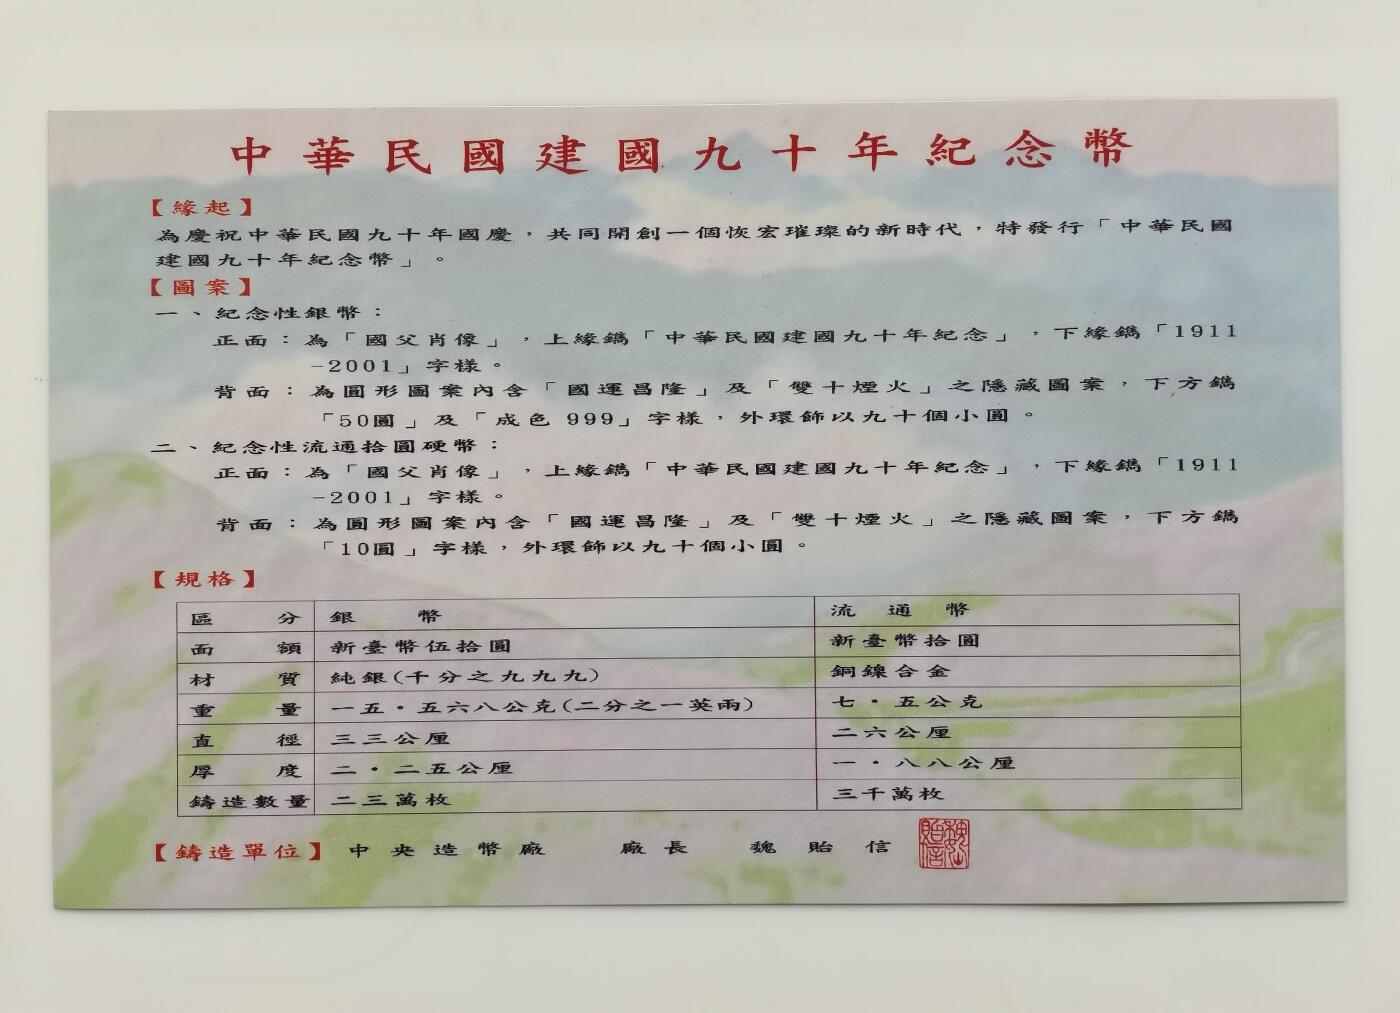 中華民國建國九十年紀念幣
【緣起】
為慶祝中華民國九十年國慶，共同開創一個恢宏璀璨的新時代，特發行「中華民國
建國九十年紀念幣」。
【圖案】
一、紀念性銀幣：
正面：為「國父肖像」，上緣鐫「中華民國建國九十年紀念」，下緣鐫「1911
-2001」字樣。
背面：為圓形圖案內含「國運昌隆」及「雙十煙火」之隱藏圖案，下方鐫
「50圓」及「成色 999」字樣，外環飾以九十個小圓。
二、紀念性流通拾圓硬幣：
正面：為「國父肖像」，上緣鐫「中華民國建國九十年紀念」，下緣鐫「1911
-2001」字樣。
背面：為圓形圖案內含「國運昌隆」及「雙十煙火」之隱藏圖案，下方鐫
「10圓」字樣，外環飾以九十個小圓。
【規格】
區分 銀幣 流通幣
面額 新臺幣伍拾圓 新臺幣拾圓
材質 純銀(千分之九九九) 銅鎳合金
重量 一五·五六八公克(二分之一英兩) 七·五公克
直徑 三三公厘 二六公厘
厚度 二·二五公厘 一·八八公厘
鑄造數量 二三萬枚 三千萬枚
【鑄造單位】中央造幣廠 廠長 魏貽信